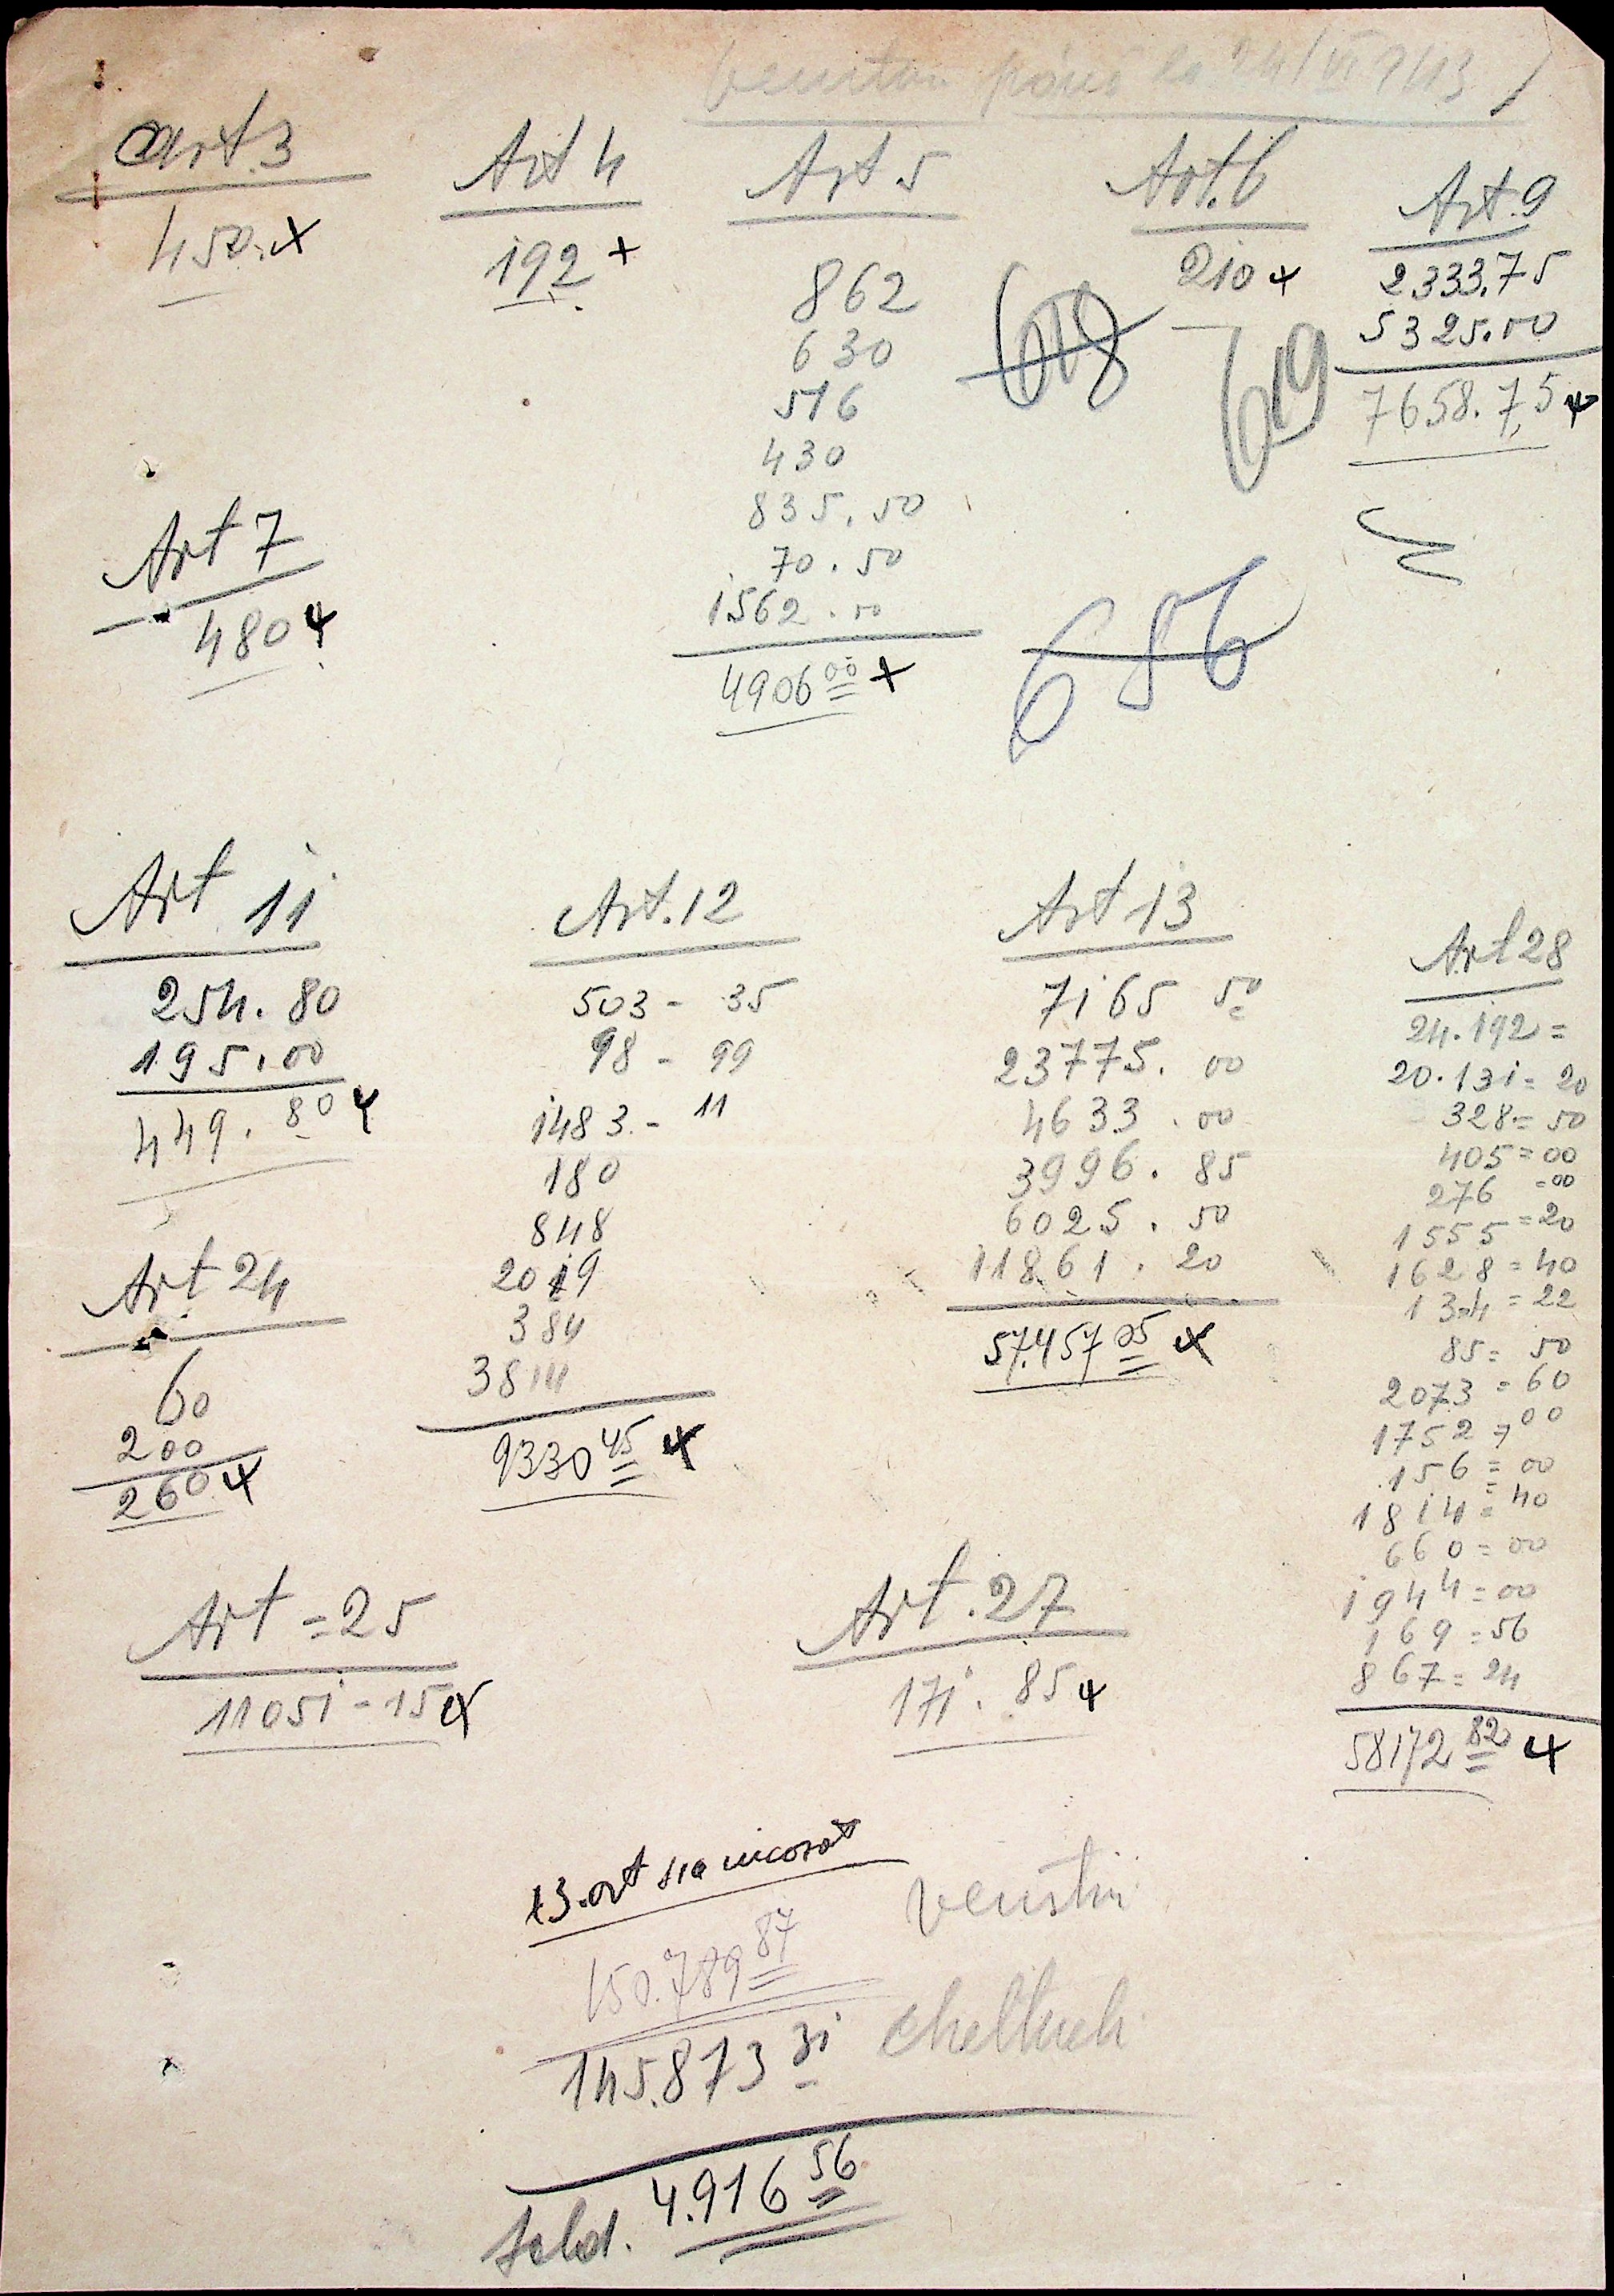 Venituri până la 24/VI 943
Art 3
450. x
Art 4
192 +
Art 5
862
630
516
430
835. 50
70. 50
1562. 00
4906 00 x
Art. 6
210 x
Art. 9
2333.75
5325.00
7658.75 x
618
619
686
Art 7
480 x
Art 11
254. 80
195. 00
449. 80 x
Art. 12
503 - 35
98 - 99
1483 - 11
180
848
2019
384
3814
9330 45 x
Art 13
7165 50
23775. 00
4633. 00
3996. 85
6025. 50
11861. 20
57.457 05 x
Art 28
24.192 =
20.131 = 20
328 = 50
405 = 00
276 = 00
1555 = 20
1628 = 40
134 = 22
85 = 50
2073 = 60
1752 = 00
156 = 00
1814 = 40
660 = 00
1944 = 00
169 = 56
867 = 24
58172 82 x
Art 24
60
200
260 x
Art = 25
11051 - 15 x
Art. 27
171. 85 x
13. art s'a incasat
150.789 87 venituri
145.873 31 cheltueli
Sold. 4.916 56